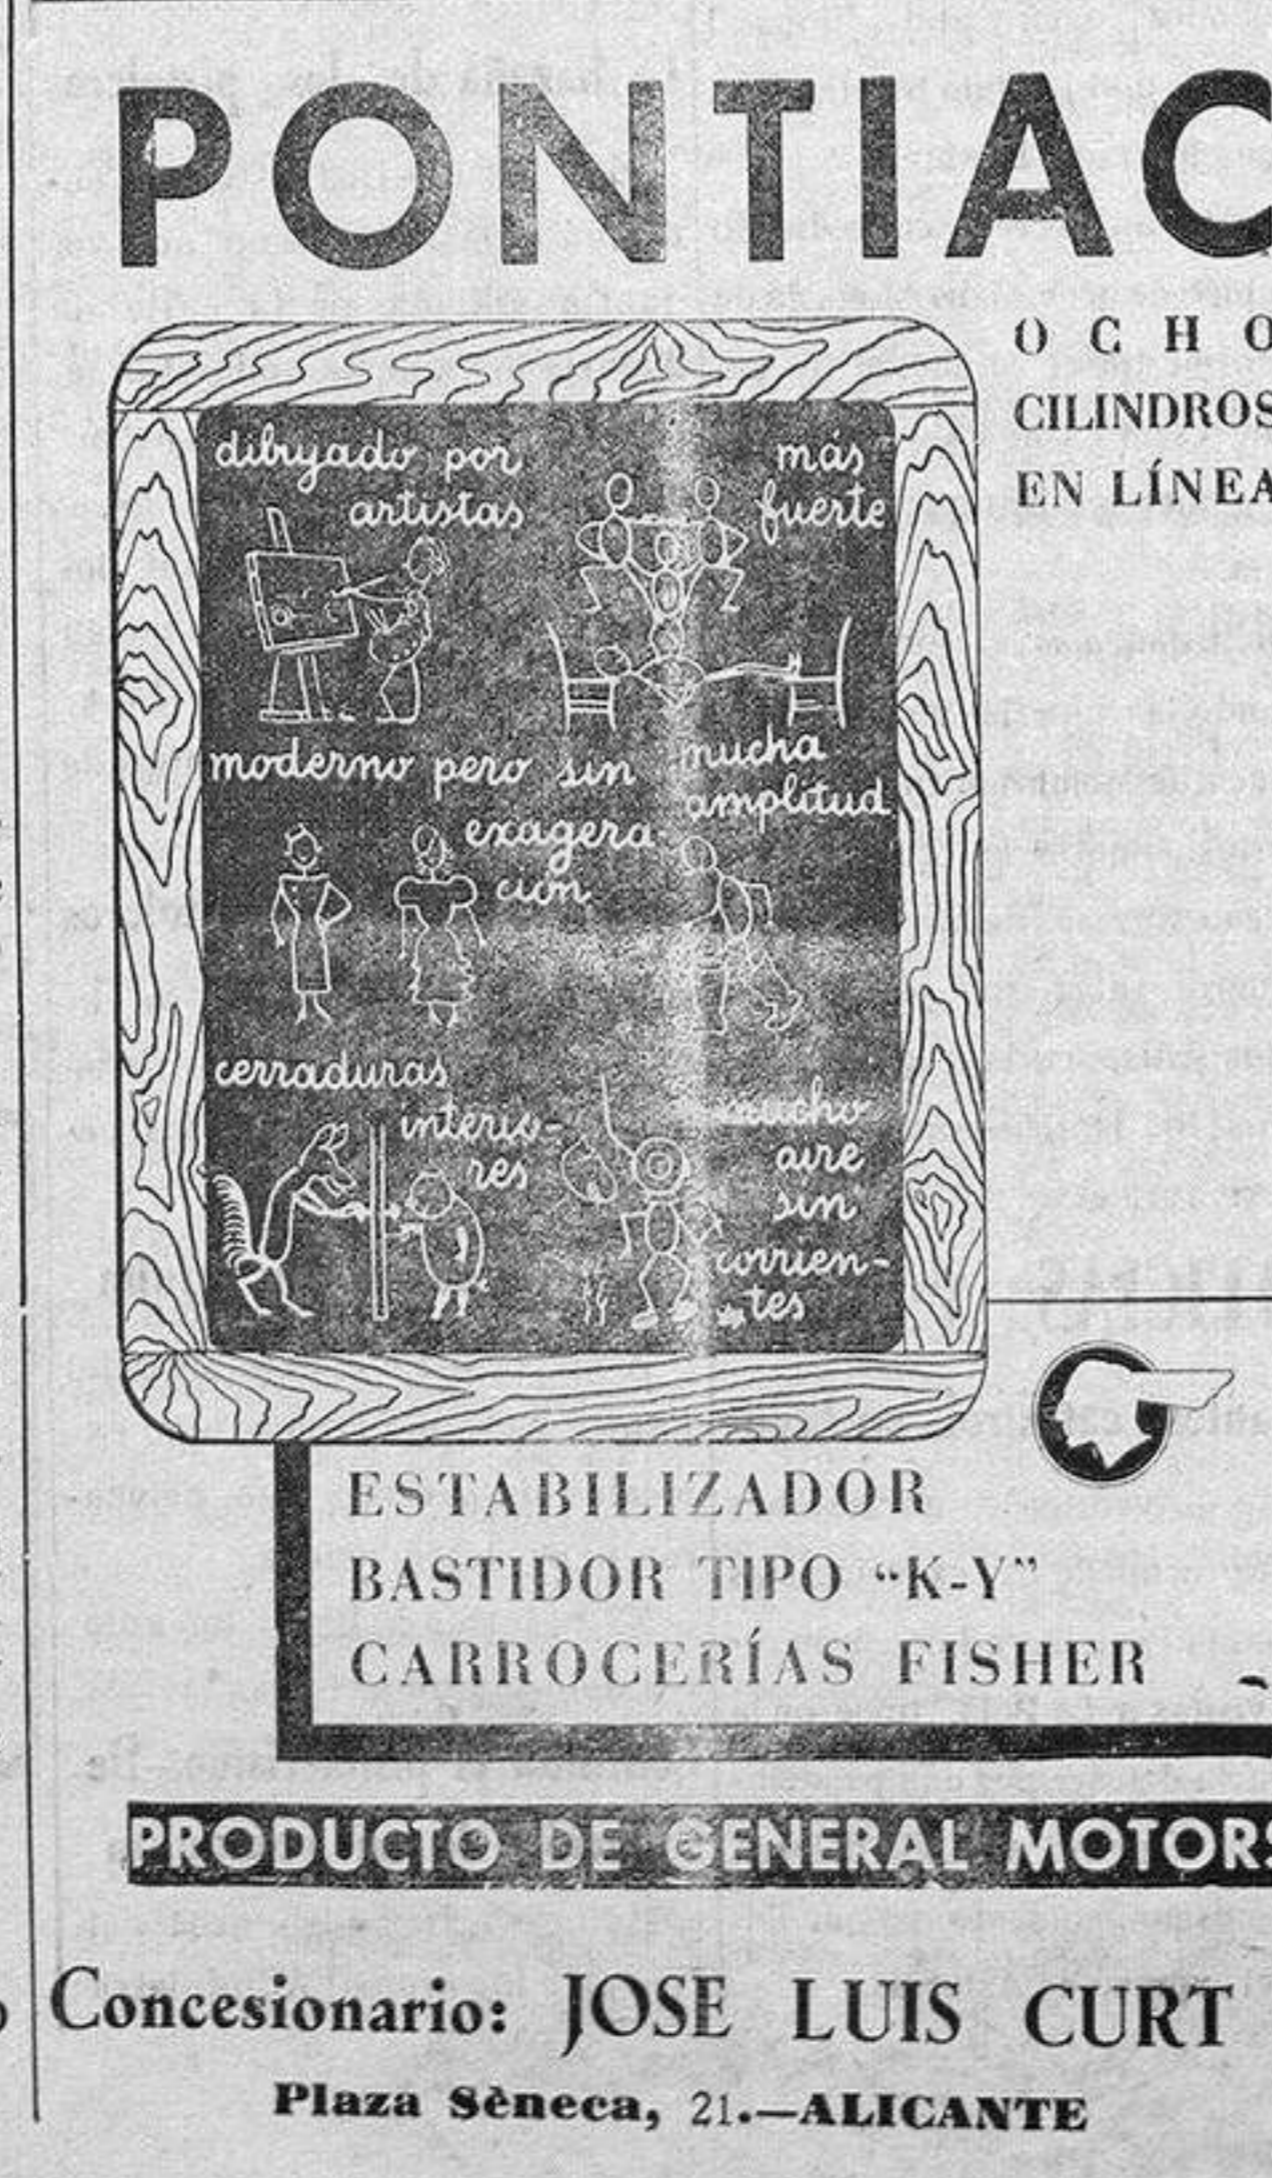 PONTIAC
OCHO
CILINDROS
EN LÍNEA
dibujado por
artistas
más
fuerte
moderno pero sin
exagera
ción
mucha
amplitud
cerraduras
interio-
res
mucho
aire
sin
corrien-
tes
ESTABILIZADOR
BASTIDOR TIPO “K-Y”
CARROCERÍAS FISHER
PRODUCTO DE GENERAL MOTORS
Concesionario: JOSE LUIS CURT
Plaza Sèneca, 21.—ALICANTE